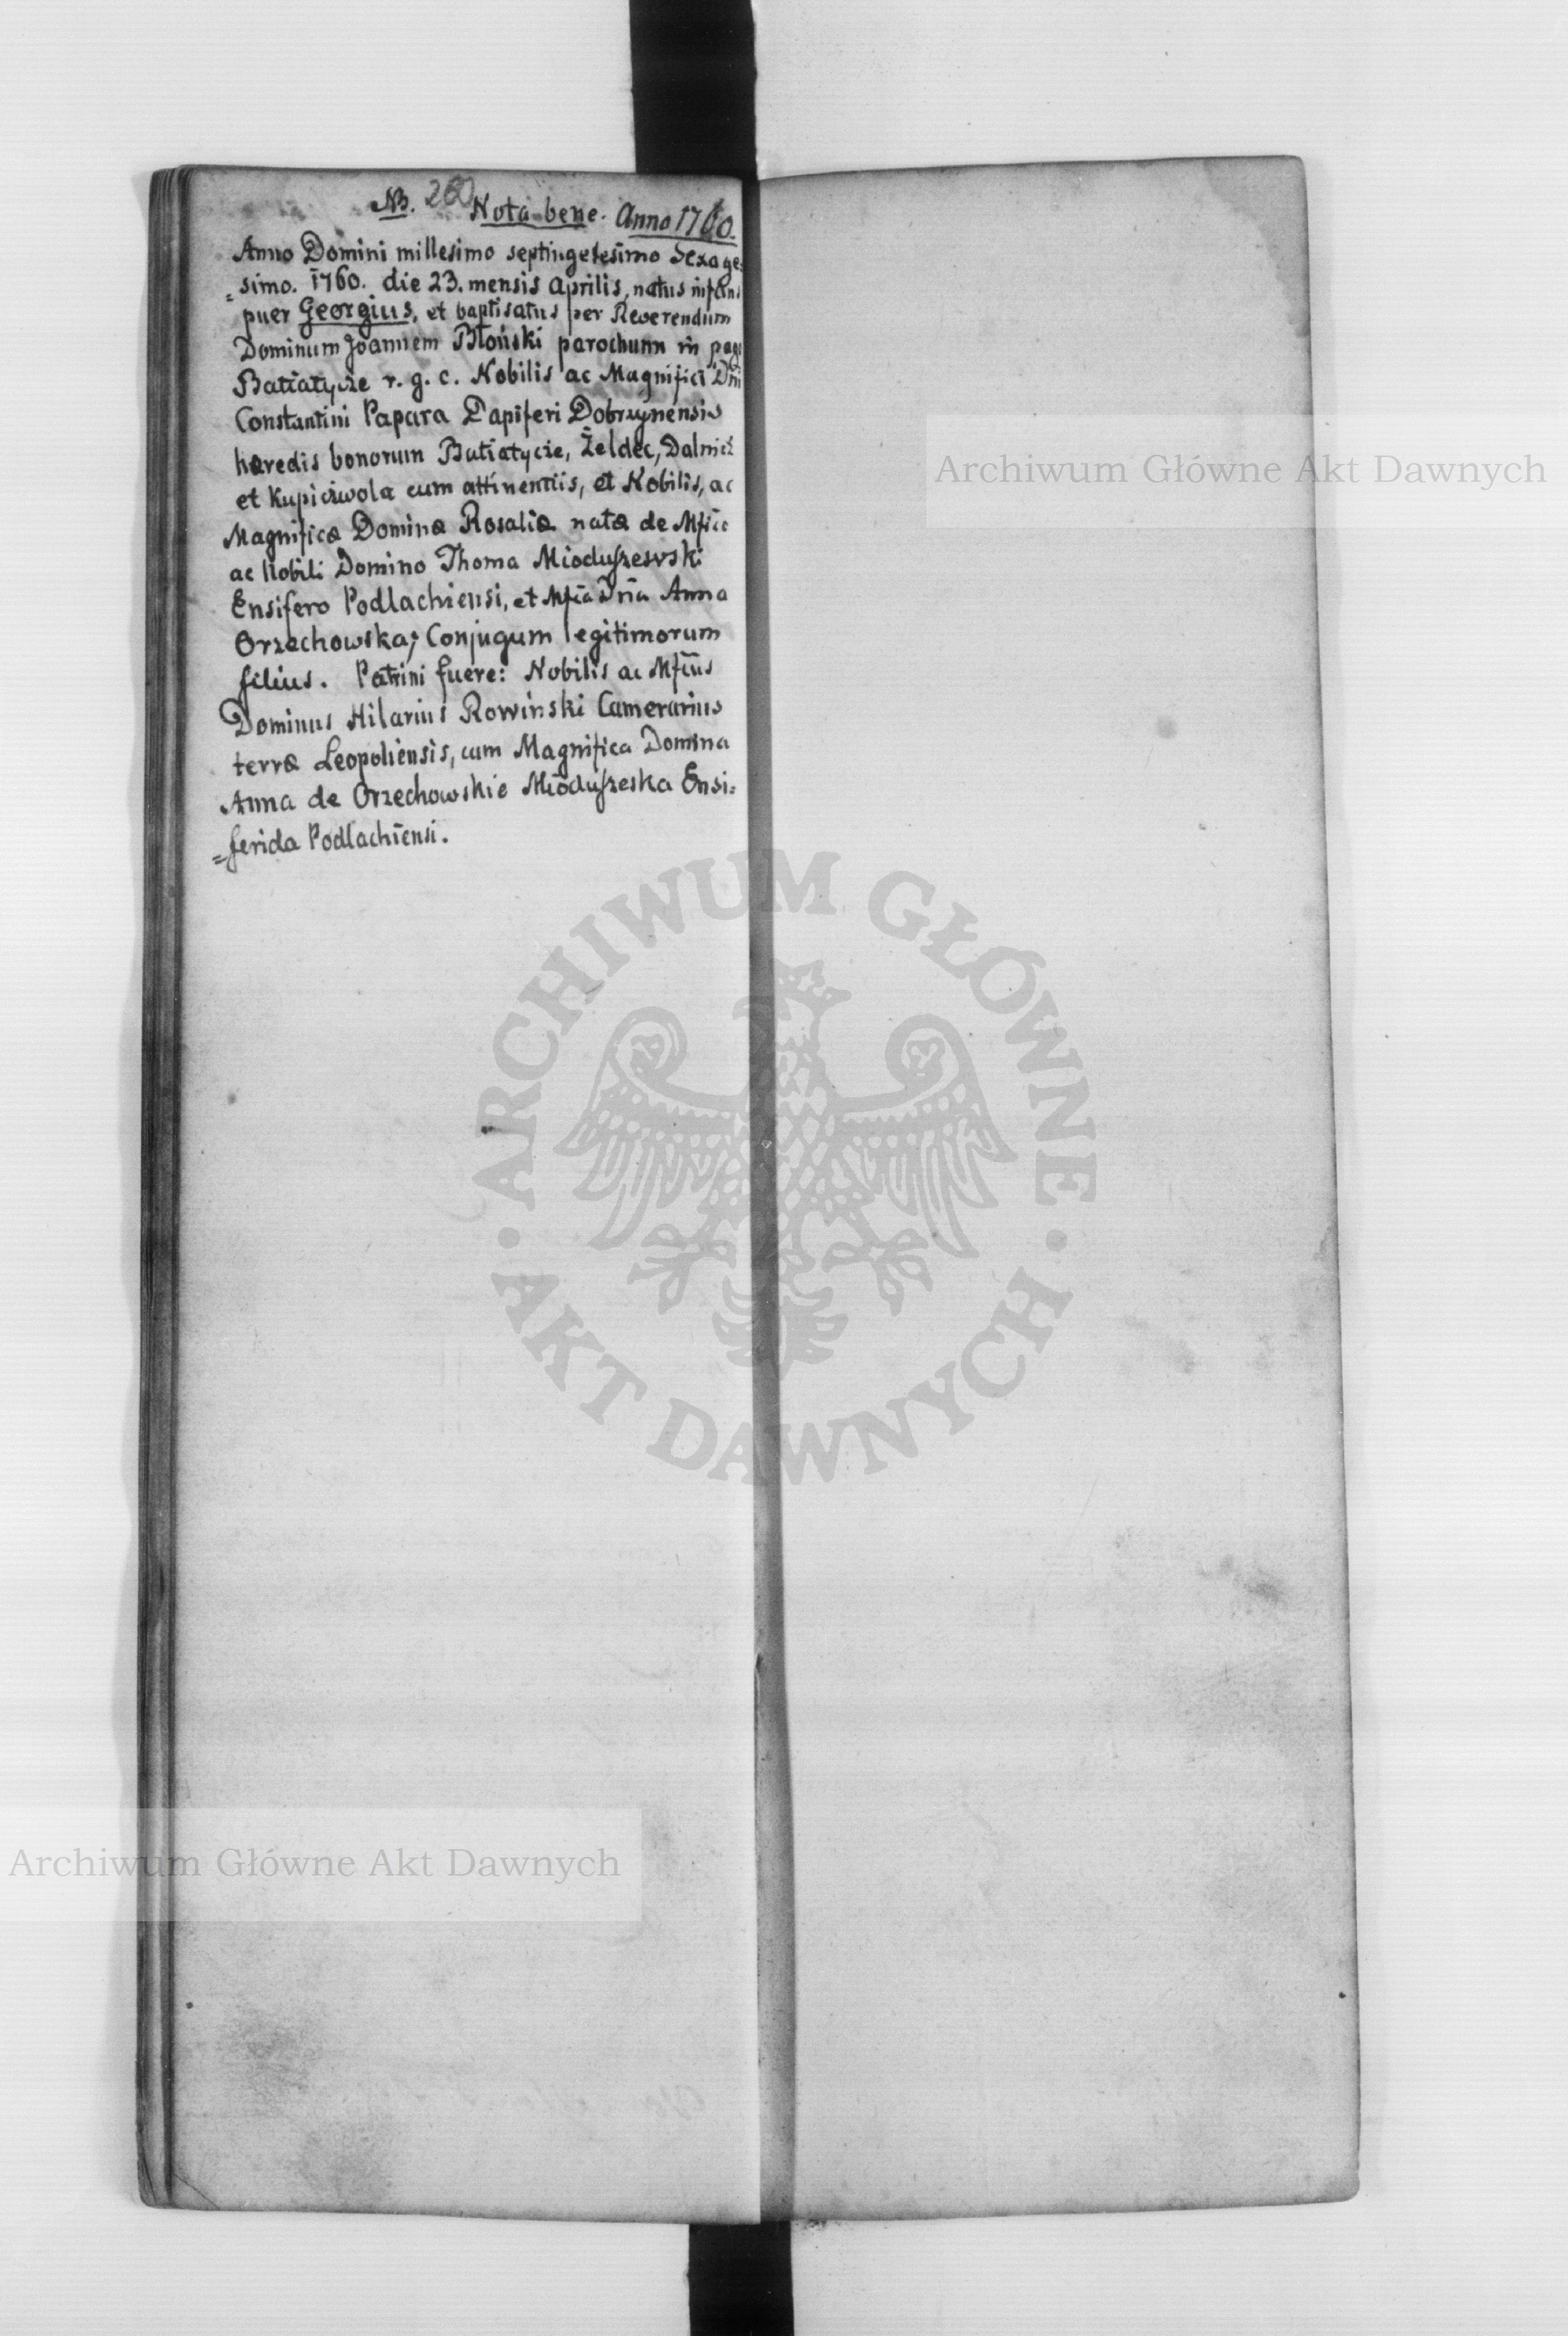 NB. 260 Nota bene. Anno 1760.
Anno Domini millesimo septingetesimo Sexage=
=simo. 1760. die 23. mensis Aprilis, natus infans
puer Georgius, et baptisatus per Reverendum
Dominum Joannem Błoński parochum in pago
Batiatycze r. g. c. Nobilis ac Magnifici Dni
Constantini Papara Dapiferi Dobrzynensis
hæredis bonorum Batiatycze, Żeldec, Dalnicz
et Kupiczwola cum attinentiis, et Nobilis, ac
Magnificæ Dominæ Rosaliæ natæ de Mfico
ac Nobili Domino Thoma Mioduszewski
Ensifero Podlachiensi, et Mfica Dna Anna
Orzechowska; Conjugum legitimorum
filius. Patrini fuere: Nobilis ac Mficus
Dominus Hilarius Rowinski Camerarius
terræ Leopoliensis, cum Magnifica Domina
Anna de Orzechowskie Mioduszeska Ensi=
=ferida Podlachiensi.
Archiwum Główne Akt Dawnych
ARCHIWUM GŁÓWNE
AKT DAWNYCH
Archiwum Główne Akt Dawnych